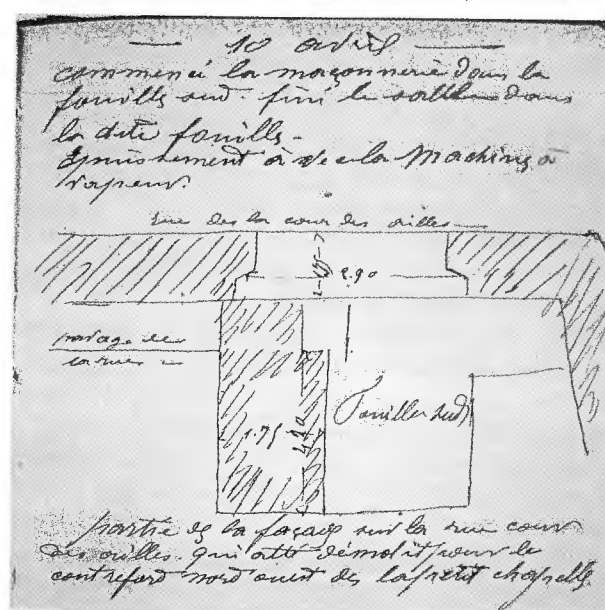 — 10 avril —
commencé la maçonnerie dans la
fouilles sud - fini le sable dans
la dite fouilles -
épuissement avec la Machine à
vapeur.
rue des la cour des ailles
2.90
pavage de
la rue
1.75
Fouilles sud
partie de la façade sur la rue cour
des ailles qui a été démolit pour le
contreford nord ouest des la petit chapelle